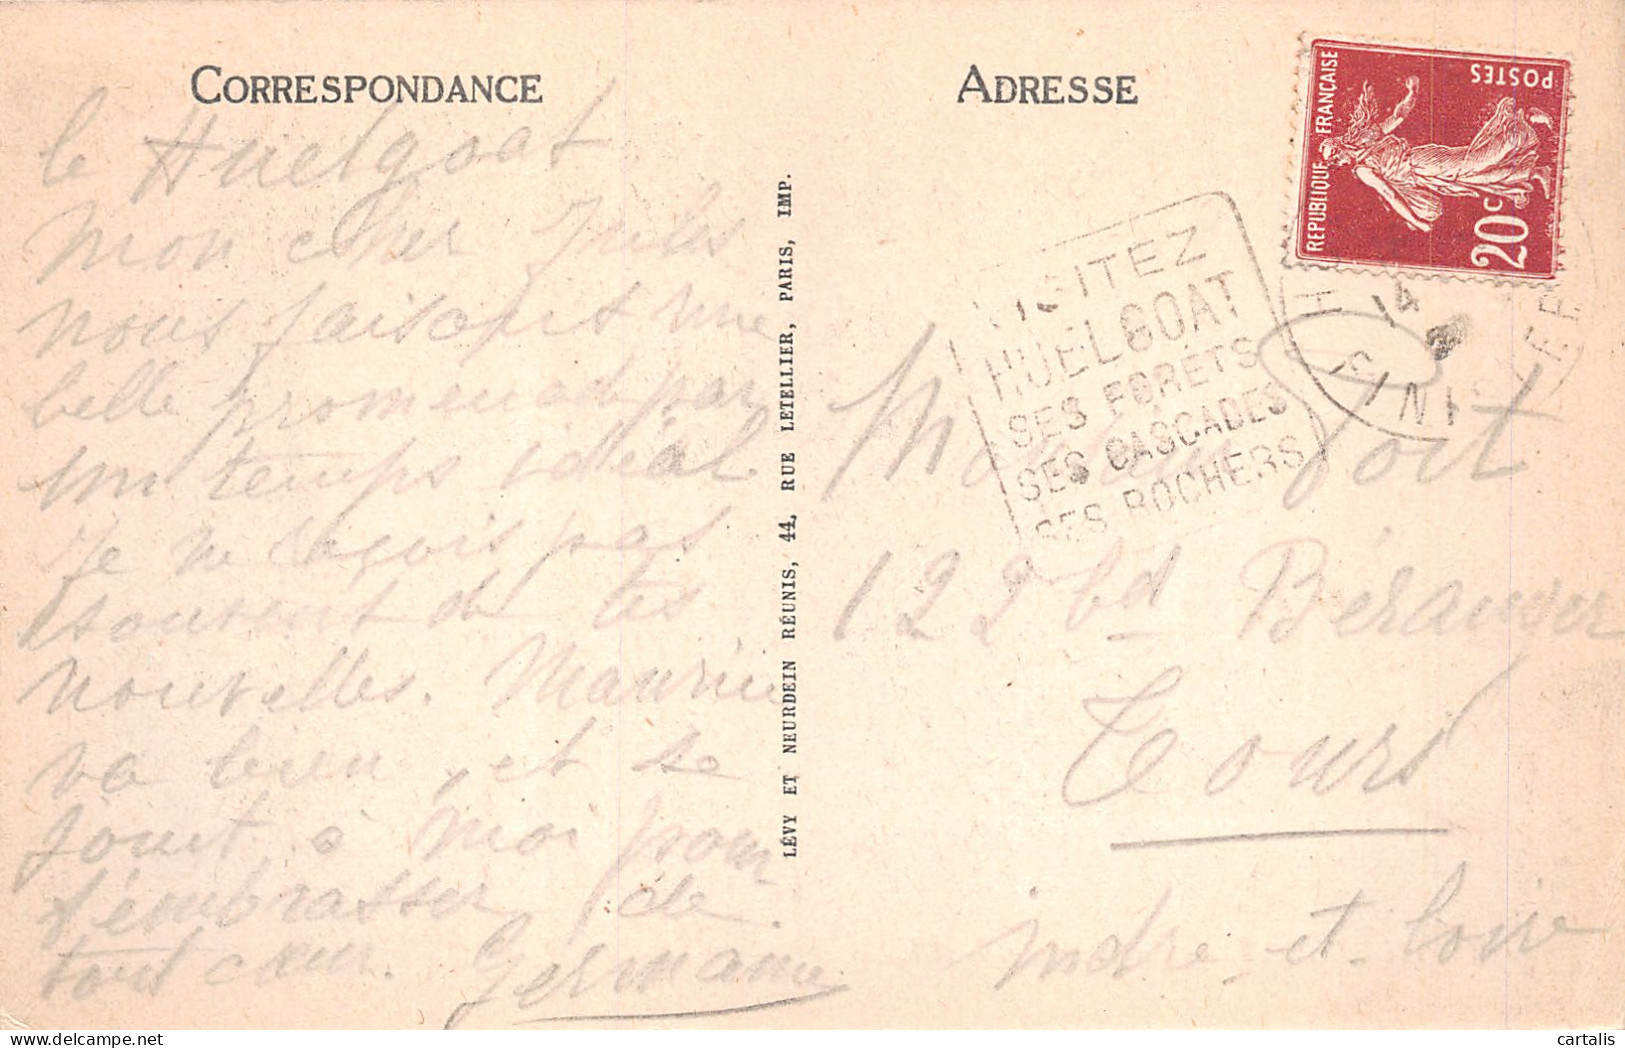 CORRESPONDANCE
le Huelgoat
mon cher Jules
nous faisons une
belle promenade par
un temps idéal
Je ne reçois pas
souvent de tes
nouvelles. Maurice
va bien, et se
joint à moi pour
t'embrasser de
tout cœur. Germaine
LÉVY ET NEURDEIN RÉUNIS, 44, RUE LETELLIER, PARIS, IMP.
ADRESSE
REPUBLIQUE FRANÇAISE
POSTES
20c
VISITEZ
HUELGOAT
SES FORETS
SES CASCADES
SES ROCHERS
14
FINISTERE
M
122 bd Béranger
Tours
indre-et-loire
cartalis